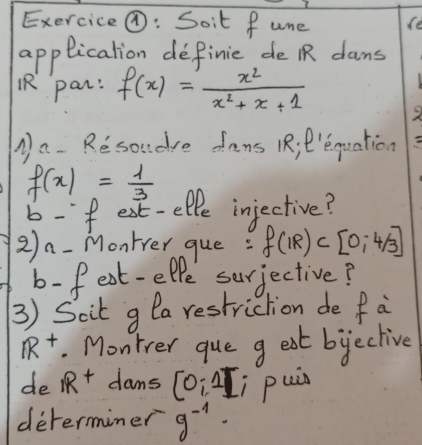 Exercice ①: Soit f une
application définie de IR dans
IR par: f(x) = x² / (x² + x + 1)
1) a - Résoudre dans IR; l'équation
f(x) = 1/3
b - f est-elle injective?
2) a - Montrer que : f(IR) ⊂ [0; 4/3]
b - f est-elle surjective?
3) Soit g la restriction de f à
IR⁺. Montrer que g est bijective
de IR⁺ dans [0; 1[; puis
déterminer g⁻¹.